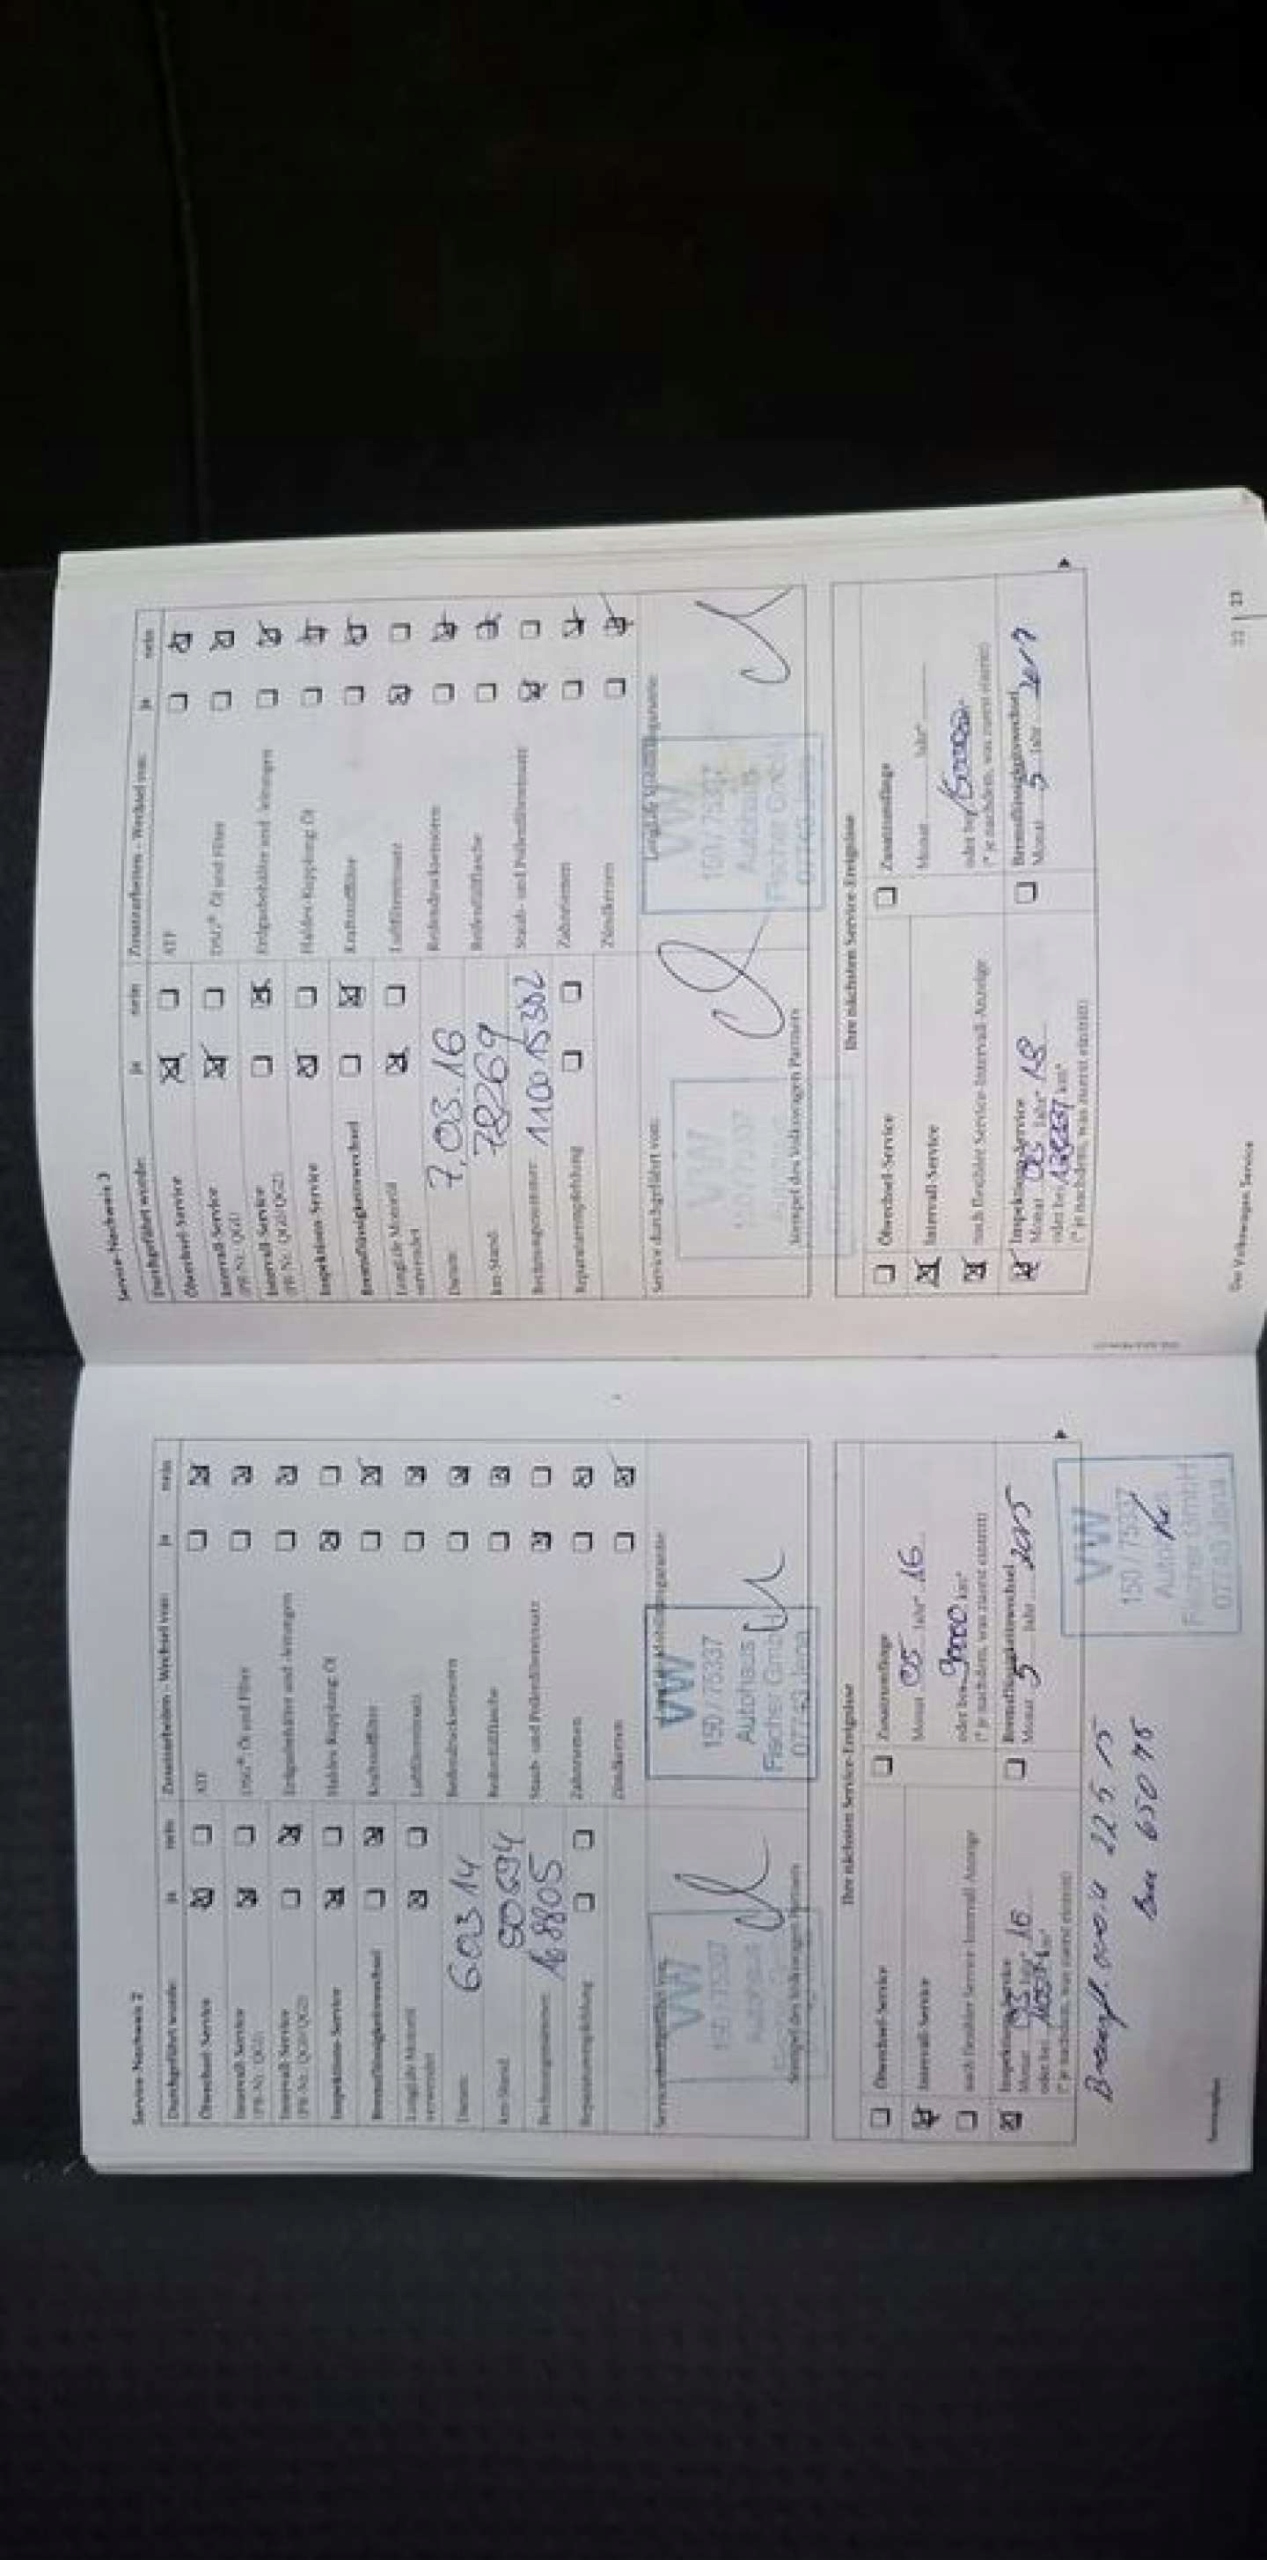 Service-Nachweis 2
Durchgeführt wurde: ja nein
Ölwechsel-Service
Intervall-Service
(PR-Nr.: QG1)
Intervall-Service
(PR-Nr.: QG0/QG2)
Inspektions-Service
Bremsflüssigkeitswechsel
LongLife Motoröl
verwendet
Datum: 6 03 14
km-Stand:
Rechnungsnummer: 168805
Reparaturempfehlung
Zusatzarbeiten - Wechsel von: ja nein
ATF
DSG® Öl und Filter
Erdgasbehälter und -leitungen
Haldex Kupplung Öl
Kraftstofffilter
Luftfiltereinsatz
Reifendrucksensoren
Reifenfüllflasche
Staub- und Pollenfiltereinsatz
Zahnriemen
Zündkerzen
Service durchgeführt von:
VW
150 / 75337
Autohaus
Stempel des Volkswagen Partners
VW
150 / 75337
Autohaus
Fischer GmbH
07743 Jena
Ihre nächsten Service-Ereignisse
Ölwechsel-Service
Intervall-Service
nach flexibler Service-Intervall-Anzeige
Inspektions-Service
Monat 03 Jahr* 16
oder bei km*
(* je nachdem, was zuerst eintritt)
Zusatzumfänge
Monat 05 Jahr* 16
oder bei 90000 km*
(* je nachdem, was zuerst eintritt)
Bremsflüssigkeitswechsel
Monat 5 Jahr 2015
22 5 15
65076
VW
150 / 75337
Fischer GmbH
07743 Jena
Serviceplan
Service-Nachweis 3
Durchgeführt wurde: ja nein
Ölwechsel-Service
Intervall-Service
(PR-Nr.: QG1)
Intervall-Service
(PR-Nr.: QG0/QG2)
Inspektions-Service
Bremsflüssigkeitswechsel
LongLife Motoröl
verwendet
Datum: 7.03.16
km-Stand: 78269
Rechnungsnummer: 110015302
Reparaturempfehlung
Zusatzarbeiten - Wechsel von: ja nein
ATF
DSG® Öl und Filter
Erdgasbehälter und -leitungen
Haldex Kupplung Öl
Kraftstofffilter
Luftfiltereinsatz
Reifendrucksensoren
Reifenfüllflasche
Staub- und Pollenfiltereinsatz
Zahnriemen
Zündkerzen
Service durchgeführt von:
VW
Stempel des Volkswagen Partners
VW
150 / 75337
Autohaus
Fischer GmbH
Ihre nächsten Service-Ereignisse
Ölwechsel-Service
Intervall-Service
nach flexibler Service-Intervall-Anzeige
Inspektions-Service
Monat 03 Jahr* 18
oder bei km*
(* je nachdem, was zuerst eintritt)
Zusatzumfänge
Monat Jahr*
oder bei
(* je nachdem, was zuerst eintritt)
Bremsflüssigkeitswechsel
Monat 5 Jahr 2017
Der Volkswagen Service
22 | 23